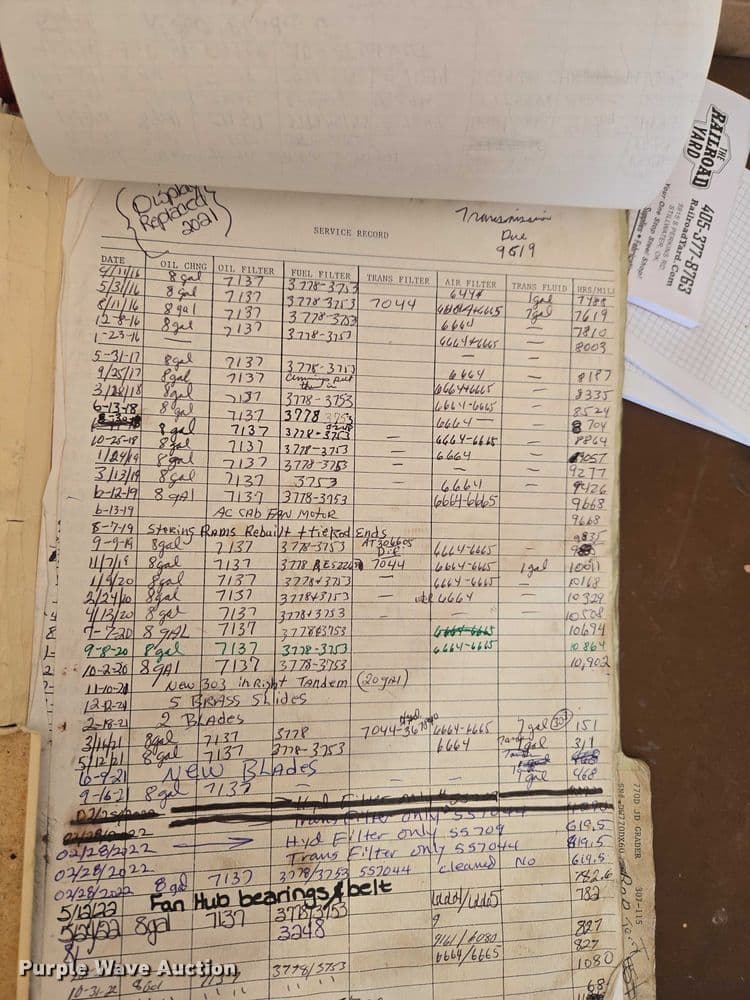 THE
RAILROAD
YARD
405-377-8763
RailroadYard.Com
5915 S PERKINS RD
STILLWATER, OK
Your One Stop Steel Shop!
Supplies • Fabrication
Display
Replaced
2021
SERVICE RECORD
Transmission
Due
9619
DATE OIL CHNG OIL FILTER FUEL FILTER TRANS FILTER AIR FILTER TRANS FLUID HRS/MILE
4/11/16 8 gal 7137 3778-3753 1gal 7488
5/3/16 8 gal 7137 3778 3753 7044 7619
8/11/16 8 gal 7137 3778-3753 6664 — 7810
12-8-16 8 gal 7137 3778-3753 6664+6665 — 8003
1-23-16 —
5-31-17 8 gal 7137 3778-3753 6664 — 8187
9/25/17 8gal 7137 6664+6665 — 8335
3/28/18 8gal 7137 3778-3753 6664-6665 — 8524
6-13-18 8 gal 7137 3778 3753 6664 — 8704
8 gal 7137 3778-3753 — 6664-6665 — 8864
10-25-18 8 gal 7137 3778-3753 — 6664 — 9057
1/24/19 8 gal 7137 3778-3753 — — — 9277
3/13/19 8 gal 7137 3753 — 6664 — 9426
6-12-19 8 gal 7137 3778-3753 6664-6665 9668
6-13-19 AC CAB FAN MOTOR 9668
8-7-19 Stering Rams Rebuilt + ticked Ends 9835
9-9-19 8gal 7137 3778-3753 AT306605 6664-6665 —
11/7/19 8gal 7137 3778 RE522688 7044 6664-6665 1gal 10011
1/9/20 8gal 7137 3778+3753 — 6664-6665 — 10168
2/24/20 8gal 7137 3778+3753 — 6664 — 10329
4/13/20 8 gal 7137 3778+3753 — — 10508
7-7-20 8 gAL 7137 3778+3753 6664-6665 10694
9-8-20 8 gal 7137 3778-3753 6664-6665 10864
10-2-20 8 gAl 7137 3778-3753 10,902
11-10-20 New 303 in Right Tandem (20 gal)
12-12-21 5 BRASS Slides
2-18-21 2 BLades
3/14/21 8gal 7137 3778 7044- Hyd 6664-6665 7 gal 303 151
5/12/21 8gal 7137 3778-3753 6664 1gal 311
6-9-21 New BLADES
9-16-21 8 gal 7137 — — 1 gal 468
02/28/2022 — > Hyd Filter only 55709 619.5
02/28/2022 Trans Filter only 557044 619.5
02/28/2022 8 gal 7137 3778/3753 557044 cleaned No 619.5
782.6
5/12/22 Fan Hub bearings & belt 782
5/24/22 8gal 7137 3778/3753 6664/6665
3248 9 827
9161/6080 827
3778/3753 6664/6665 1080
10-31-22 8gal
770D JD GRADER 307-115
Purple Wave Auction